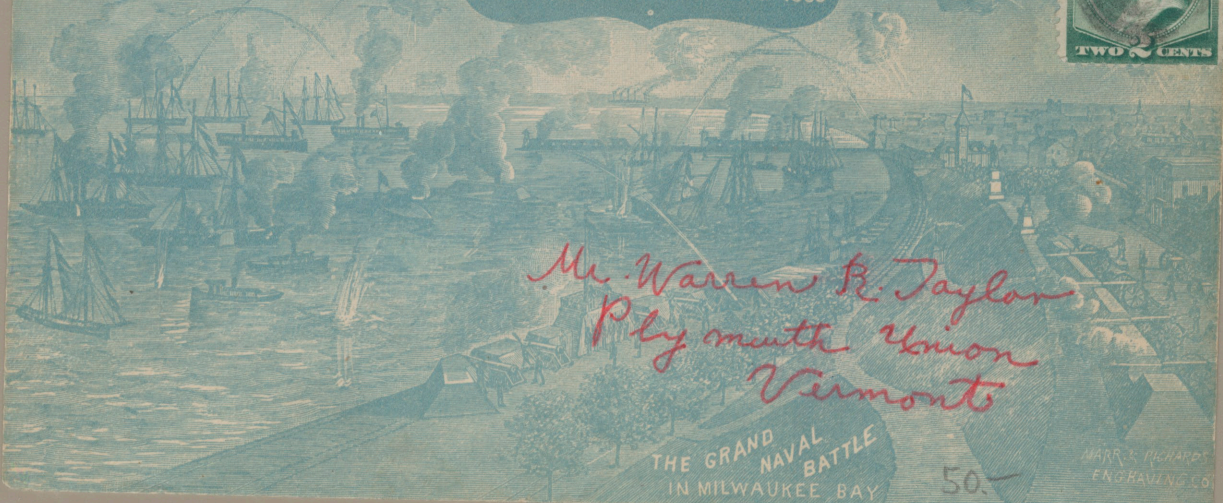 TWO 2 CENTS
Mr. Warren R. Taylor
Plymouth Union
Vermont
THE GRAND
NAVAL
BATTLE
IN MILWAUKEE BAY
50.-
MARR & RICHARDS
ENGRAVING CO